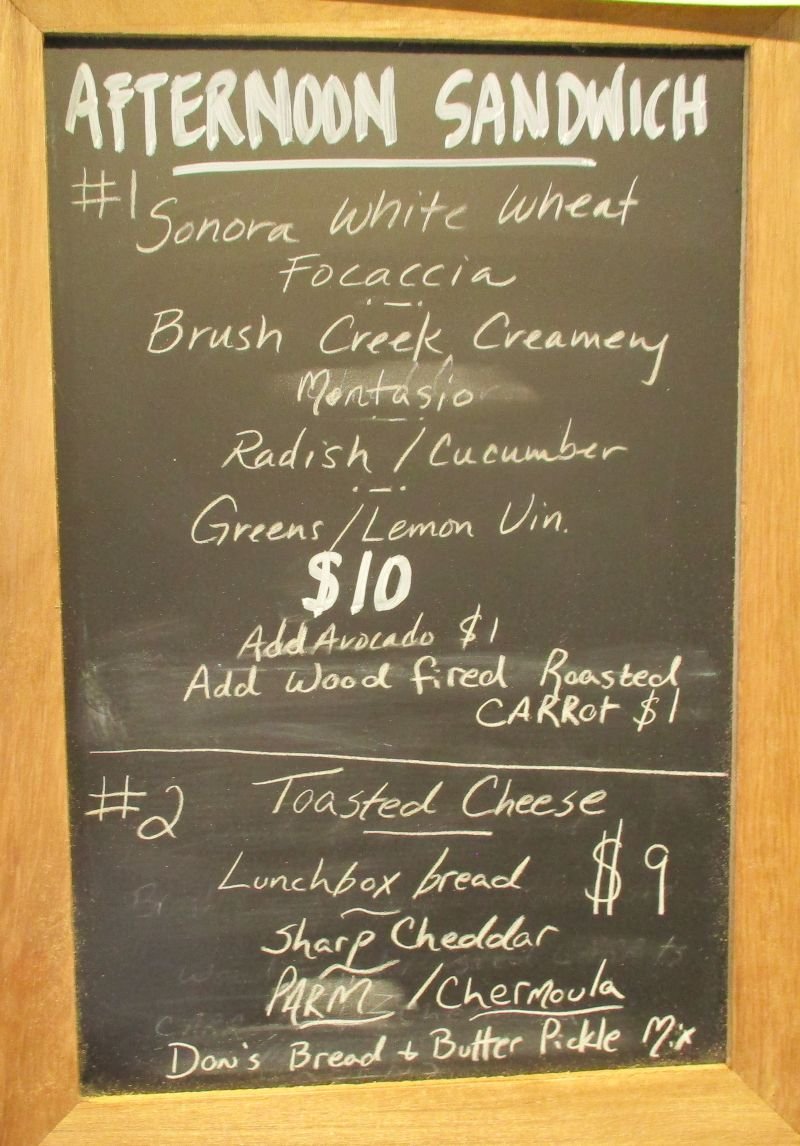 AFTERNOON SANDWICH
#1 Sonora White Wheat
Focaccia
Brush Creek Creamery
Montasio
Radish / Cucumber
Greens / Lemon Vin.
$10
Add Avocado $1
Add Wood fired Roasted
CARRot $1
#2 Toasted Cheese
Lunchbox bread $9
Sharp Cheddar
PARM / Chermoula
Don's Bread + Butter Pickle Mix